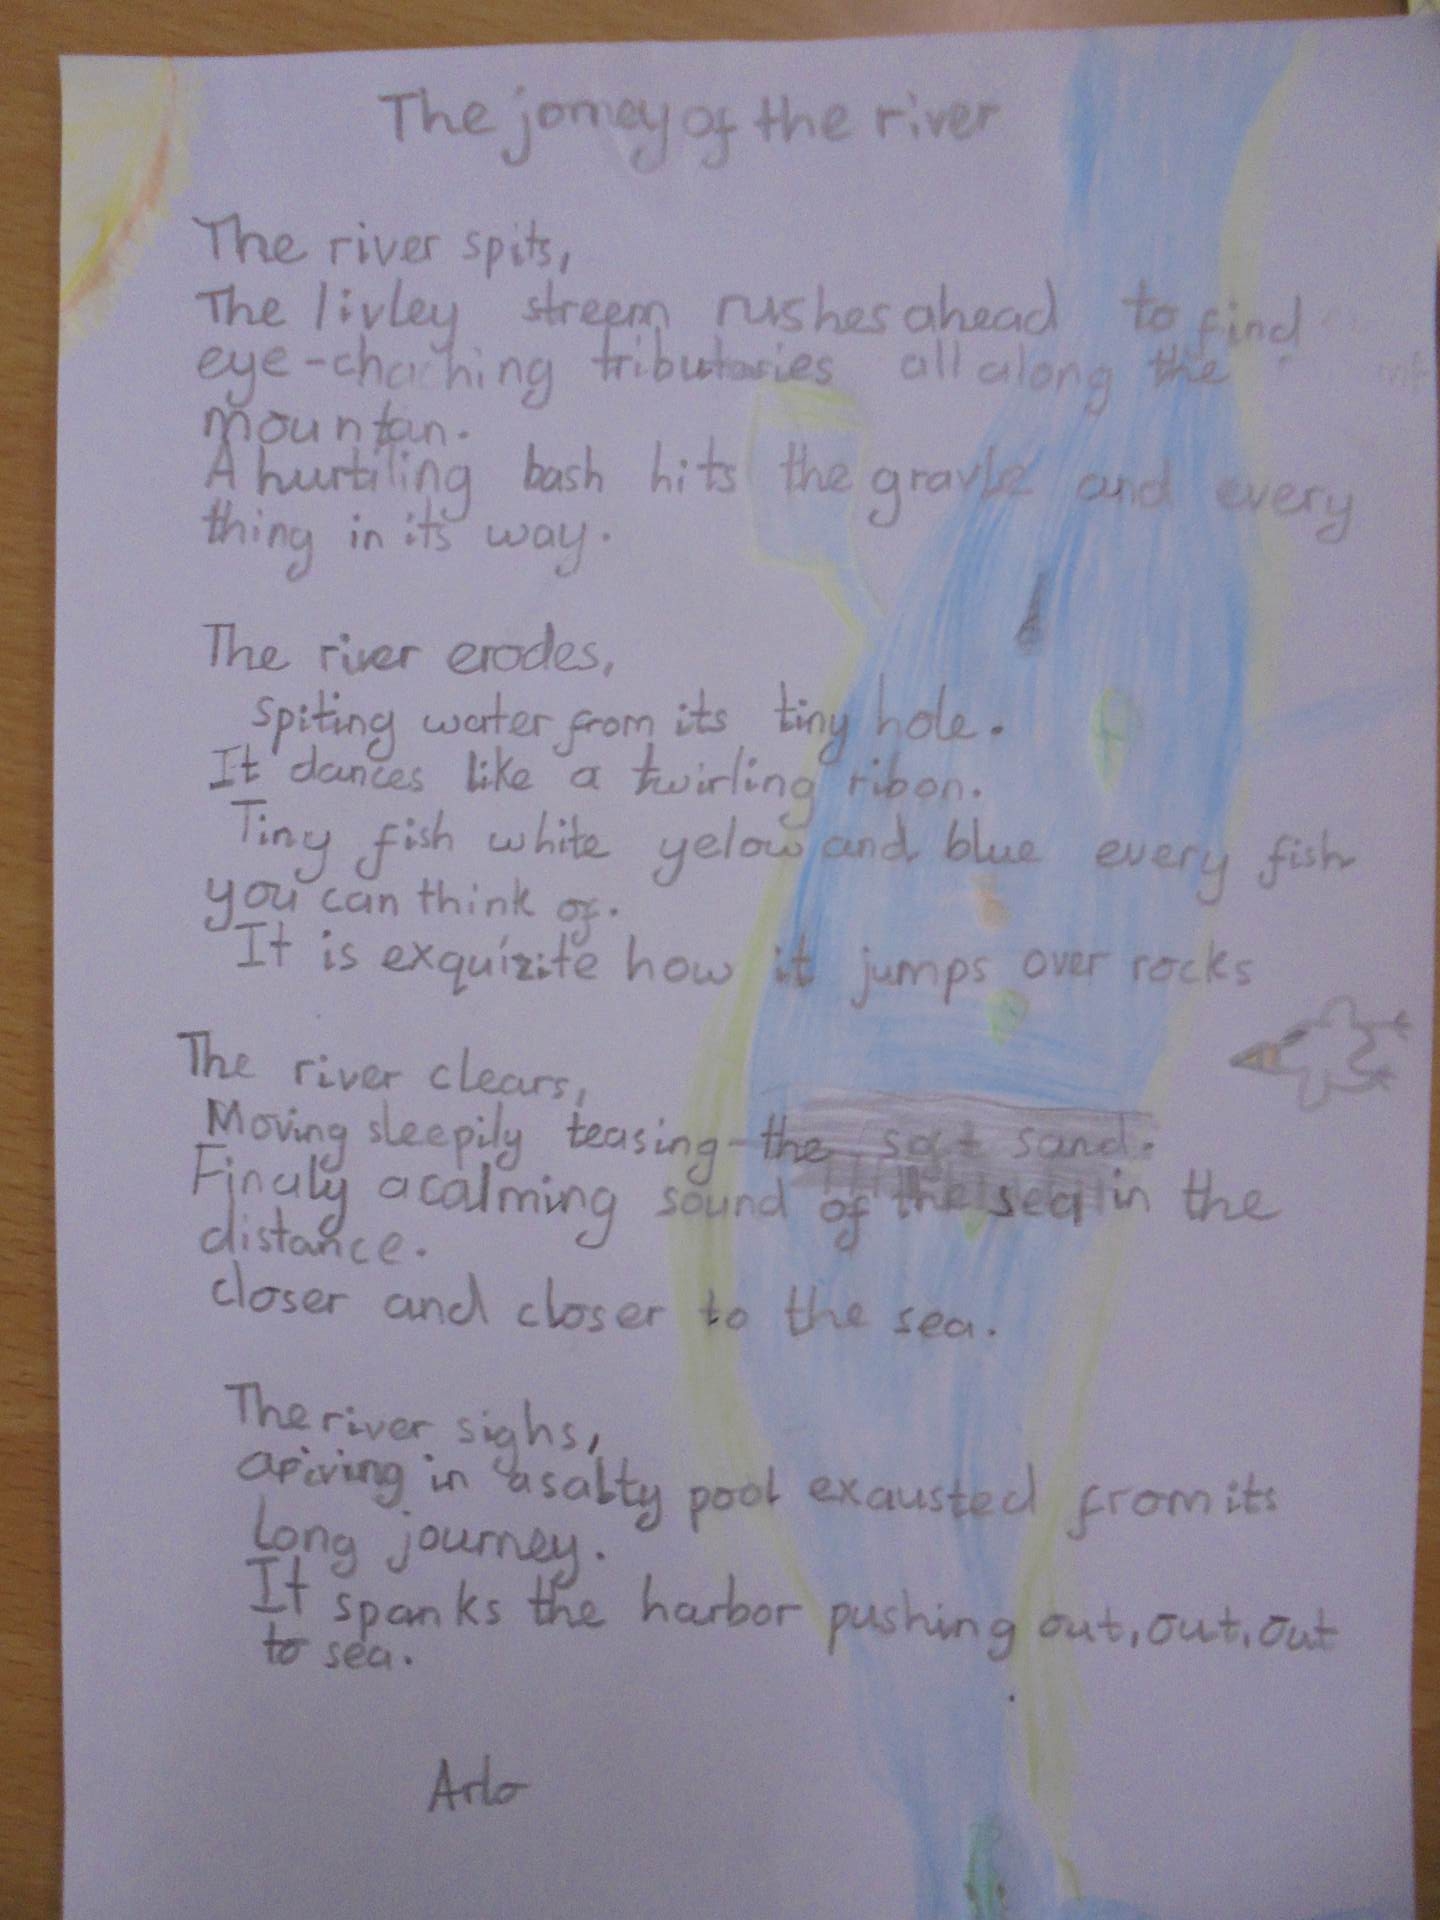 The jorney of the river
The river spits,
The livley streem rushes ahead to find
eye-chaching tributaries all along the
mountan.
A hurtiling bash hits the gravle and every
thing in its way.
The river erodes,
spiting water from its tiny hole.
It dances like a twirling ribon.
Tiny fish white yelow and blue every fish
you can think of.
It is exquizite how it jumps over rocks
The river clears,
Moving sleepily teasing the soft sand.
Finaly a calming sound of the sea in the
distance.
closer and closer to the sea.
The river sighs,
ariving in a salty pool exausted from its
long journey.
It spanks the harbor pushing out, out, out
to sea.
Arlo